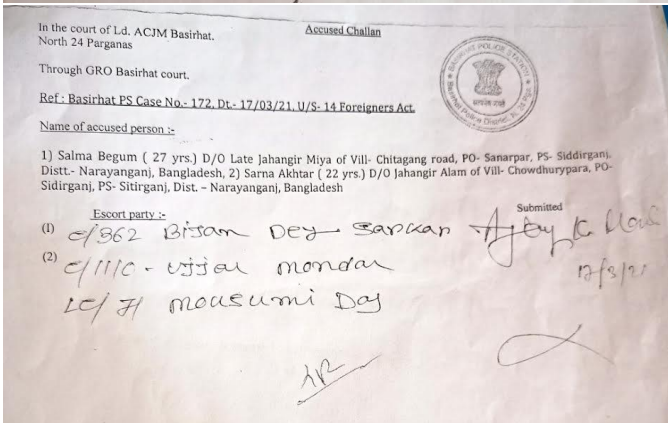 In the court of Ld. ACJM Basirhat.
Accused Challan
North 24 Parganas
Through GRO Basirhat court.
Ref : Basirhat PS Case No.- 172, Dt.- 17/03/21, U/S- 14 Foreigners Act.
Name of accused person :-
1) Salma Begum ( 27 yrs.) D/O Late Jahangir Miya of Vill- Chitagang road, PO- Sanarpar, PS- Siddirganj,
Distt.- Narayanganj, Bangladesh, 2) Sarna Akhtar ( 22 yrs.) D/O Jahangir Alam of Vill- Chowdhurypara, PO-
Sidirganj, PS- Sitirganj, Dist. – Narayanganj, Bangladesh
Escort party :-
Submitted
(1) C/362 Bijan Dey Sarkar
(2) Ujjal Mondal
LC/71 Mousumi Das
BASIRHAT POLICE STATION
Basirhat Police District, N. 24 Pgs.
सत्यमेव जयते